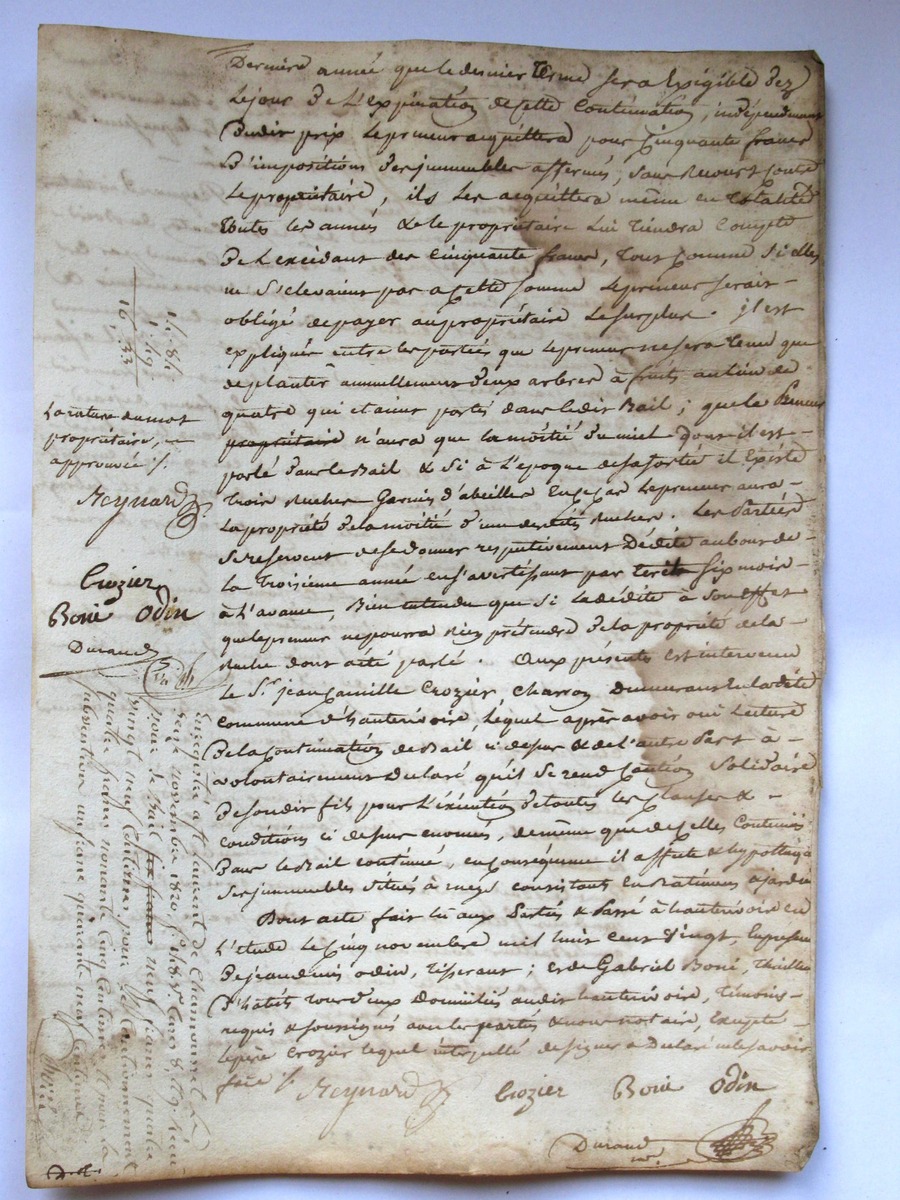 Derniere année que le dernier terme sera Exigible dez
Le jour de L'expiration de cette Continuation, indépendament
dudit prix Le preneur acquittera pour Cinquante francs
D'impositions des immeubles affermés, sans recourt contre
Le propriétaire, ils Les acquittera même en totalité
toutes les années & le propriétaire Lui tiendra Compte
de L'excédant des Cinquante francs, tout comme Si elles
ne S'elevaient pas a Cette somme Le preneur serait
obligé de payer au propriétaire Le surplus. il est
expliqués entre les parties que Le preneur ne sera tenu que
de planter annuellement deux arbres à fruits au lieu de
quatre qui etaient portés dans ledit Bail; que Le Preneur
propriétaire n'aura que la moitié du miel dont il est
parlé dans le Bail & Si à L'epoque de sa sortie il Existe
trois ruches Garnies d'abeilles En ce Cas Le preneur aura
La propriété de la moitié d'une desdites ruches. Les Parties
se reservent de se donner respectivement Dédite au bout de
la troisieme année en s'avertissant par Six mois
à L'avance, Bien entendu que Si la dédite à Son effet
que le preneur ne pourra Rien prétendre de la propriété de la
Ruche dont a été parlé. Aux présentes est intervenu
Le Sr. jean Camille Crozier Charron Demeurant En ladite
commune d'hauterivoire, Lequel après avoir oui Lecture
de la Continuation de Bail ci dessus & de l'autre Part a
volontairement declaré qu'il Se rend Caution Solidaire
de sondit fils pour L'éxécution de toutes les Clauses &
conditions ci dessus enoncées, de même que de Celles Contenues
Dans le Bail continué, en Conséquence il affecte & hypotteque
Ses immeubles Situés à meys consistants En Batiments & jardin
Dont acte fait lû aux Parties & Passé à hauterivoire En
L'etude Le Cinq novembre mil huit cent vingt, En presence
De jean denis odin, tisserant; et de Gabriel Boné, tailleur
d'habits tous deux Domiciliés audit hauterivoire, témoins
requis & soussignés avec les parties & nous notaire, Excepté
Le père Crozier Lequel interpellé de signer a Declaré ne le savoir
faire
Reynard Crozier Boné Odin
Durand
not.
16. 33
La rature du mot
propriétaire, 
approuvée
Reynard
Crozier
Boné Odin
Durand
Enregistré à St Laurent de Chamousset Le
seize novembre 1820, 
pour le Bail neuf francs quatre
vingt neuf Centimes, pour Le Cautionnement
quatre francs nonante Cinq Centimes & pour la
subvention un franc quarante neuf Centimes